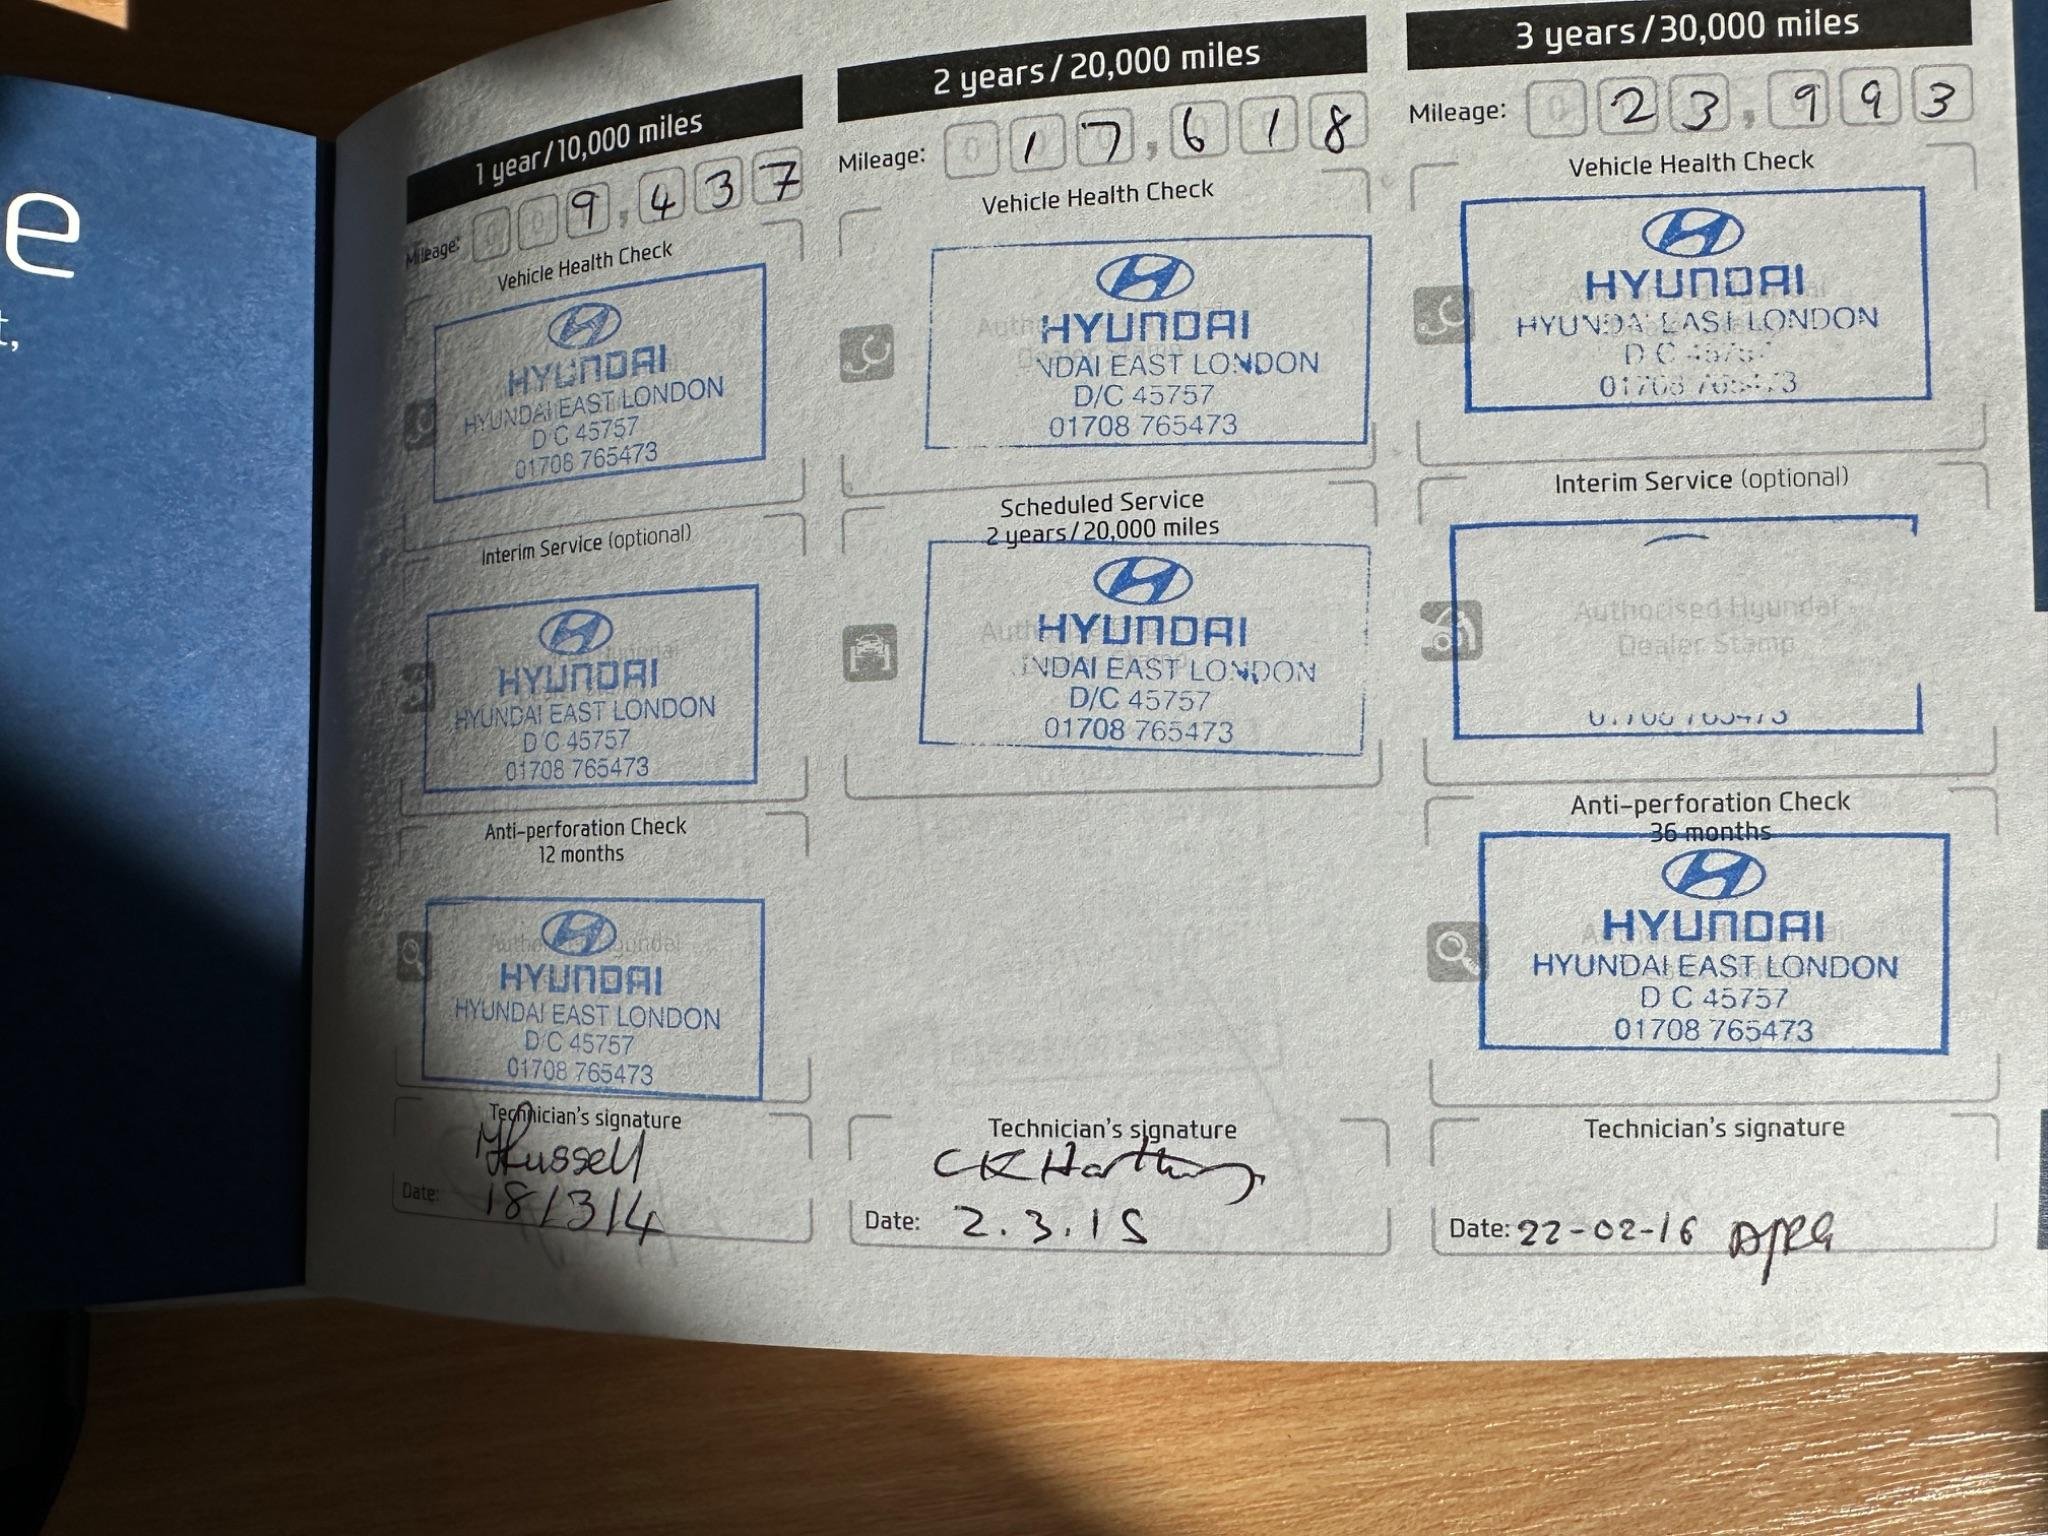 e
t,
1 year/10,000 miles
Mileage: 009,437
Vehicle Health Check
HYUNDAI
HYUNDAI EAST LONDON
D C 45757
01708 765473
Interim Service (optional)
HYUNDAI
HYUNDAI EAST LONDON
D C 45757
01708 765473
Anti-perforation Check
12 months
Authorised Hyundai
HYUNDAI
HYUNDAI EAST LONDON
D/C 45757
01708 765473
Technician's signature
Russell
Date: 18/3/14
2 years/20,000 miles
Mileage: 017,618
Vehicle Health Check
HYUNDAI
NDAI EAST LONDON
D/C 45757
01708 765473
Scheduled Service
2 years/20,000 miles
HYUNDAI
NDAI EAST LONDON
D/C 45757
01708 765473
Technician's signature
Date: 2.3.15
3 years/30,000 miles
Mileage: 023,993
Vehicle Health Check
HYUNDAI
HYUNDAI EAST LONDON
D C
01708
Interim Service (optional)
Authorised Hyundai
Dealer Stamp
Anti-perforation Check
36 months
HYUNDAI
HYUNDAI EAST LONDON
D C 45757
01708 765473
Technician's signature
Date: 22-02-16